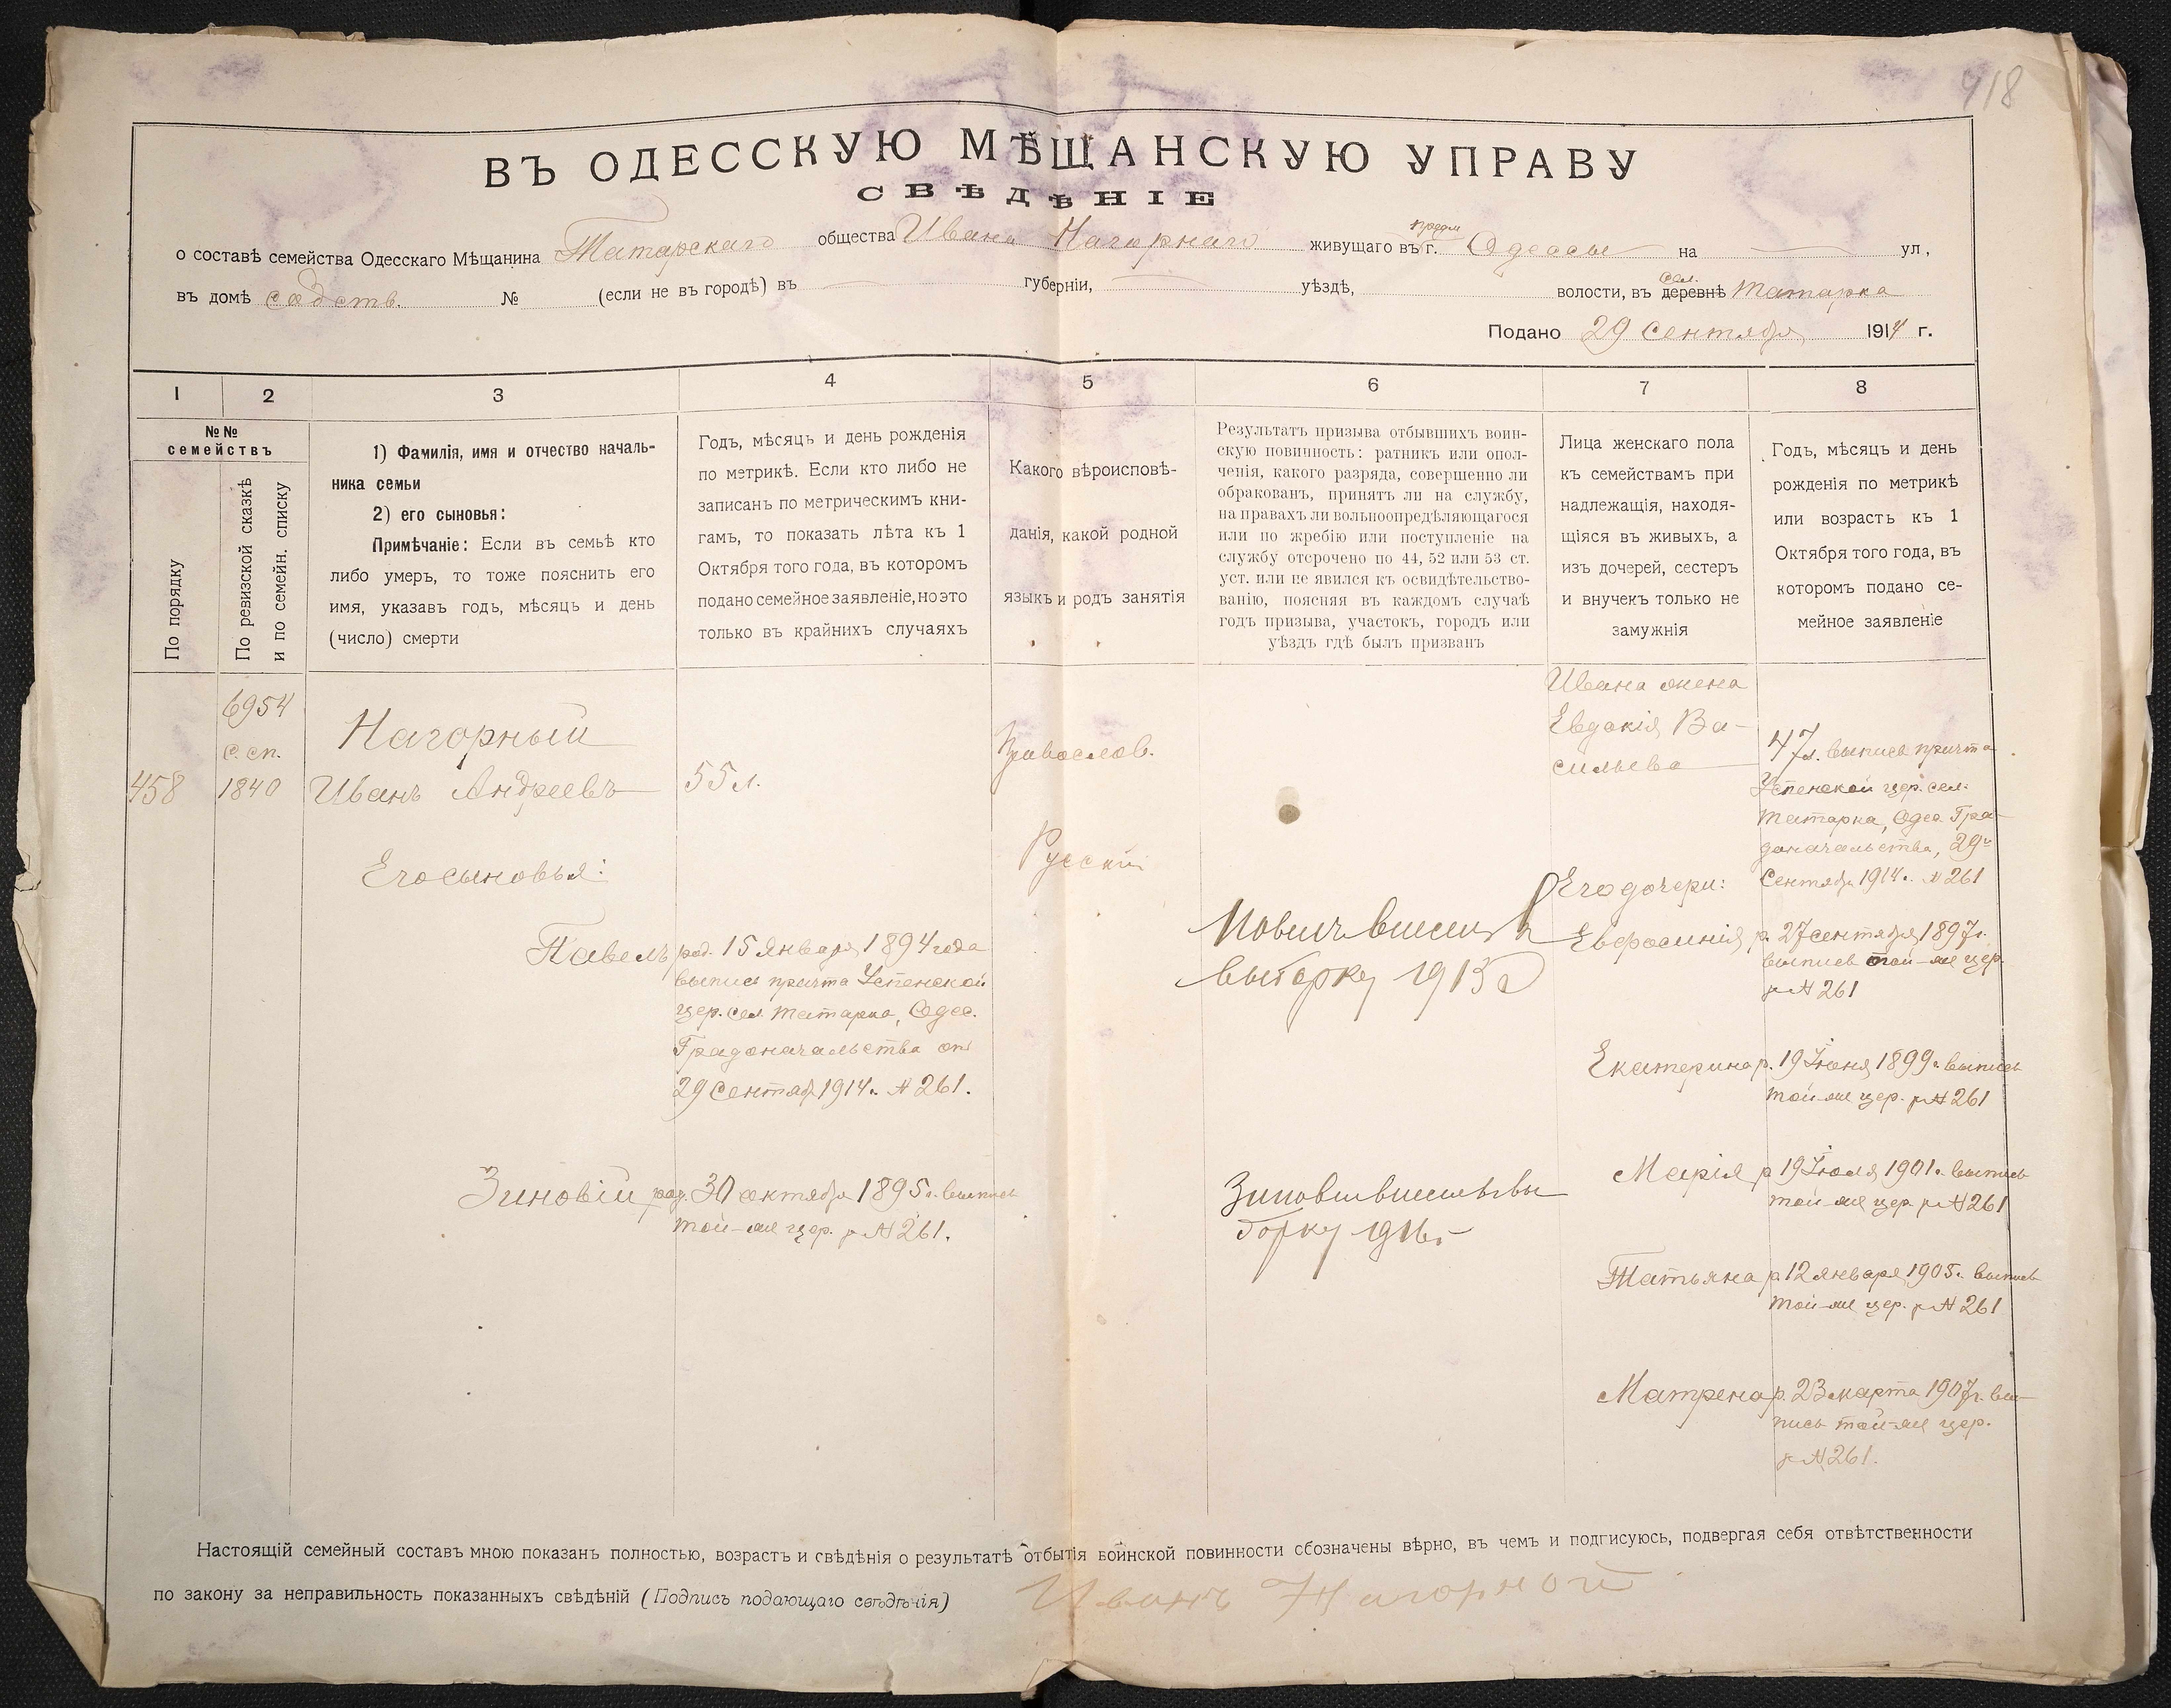 418
ВЪ ОДЕССКУЮ МѢЩАНСКУЮ УПРАВУ
СВѢДѢНІЕ
о составѣ семейства Одесскаго Мѣщанина Татарскаго общества Ивана Нагорнаго живущаго въ г. предм Одессы на ул,
въ домѣ собств. № (если не въ городѣ) въ губерніи, уѣздѣ, волости, въ деревнѣ сел. Татарка
Подано 29 Сентября 1914 г.
1 2 3 4 5 6 7 8
№№
семействъ
По порядку
По ревизской сказкѣ
и по семейн. списку
1) Фамилія, имя и отчество началь-
ника семьи
2) его сыновья:
Примѣчаніе: Если въ семьѣ кто
либо умеръ, то тоже пояснить его
имя, указавъ годъ, мѣсяць и день
(число) смерти
Годъ, мѣсяць и день рожденія
по метрикѣ. Если кто либо не
записанъ по метрическимъ кни-
гамъ, то показать лѣта къ 1
Октября того года, въ которомъ
подано семейное заявленіе, но это
только въ крайнихъ случаяхъ
Какого вѣроисповѣ-
данія, какой родной
языкъ и родъ занятія
Результатъ призыва отбывшихъ воин-
скую повинность: ратникъ или опол-
ченія, какого разряда, совершенно ли
обракованъ, принятъ ли на службу,
на правахъ ли вольноопредѣляющагося
или по жребію или поступленіе на
службу отсрочено по 44, 52 или 53 ст.
уст. или не явился къ освидѣтельство-
ванію, поясняя въ каждомъ случаѣ
годъ призыва, участокъ, городъ или
уѣздъ гдѣ былъ призванъ
Лица женскаго пола
къ семействамъ при
надлежащія, находя-
щіяся въ живыхъ, а
изъ дочерей, сестеръ
и внучекъ только не
замужнія
Годъ, мѣсяць и день
рожденія по метрикѣ
или возрасть къ 1
Октября того года, въ
которомъ подано се-
мейное заявленіе
458
6954
с. сп.
1840
Нагорный
Иванъ Андреевъ
55 л.
Православ.
Русскій
Ивана жена
Евдокія Ва-
сильева
47 л. выпись причта
Успенской цер. сел.
Татарка, Одес Гра-
доначальства, 29го
Сентября 1914 г. № 261
Его сыновья:
Павелъ род. 15 Января 1894 года
выпись причта Успенской
цер. сел. Татарка, Одес.
Градоначальства от
29 Сентяб 1914 г. № 261.
выборку 1915 г
Его дочери:
Евфросинія р. 27 сентября 1897 г.
выпись той-же цер.
№ 261
Екатерина р. 19 Іюня 1899 г. выпись
той-же цер. № 261
Зиновій род. 30 октября 1895 г. выпись
той-же цер. № 261.
борку 1916 г
Марія р 19 Іюля 1901 г. выпись
той-же цер. № 261
Татьяна р 12 января 1905 г. выпись
той-же цер. № 261
Матрена р. 23 марта 1907 г. вы-
пись той-же цер.
№ 261.
Настоящій семейный составъ мною показанъ полностью, возрастъ и свѣдѣнія о результатѣ отбытія воинской повинности обозначены вѣрно, въ чемъ и подгисуюсь, подвергая себя отвѣтственности
по закону за неправильность показанныхъ свѣдѣній (Подпись подающаго свѣдѣнія) Иванъ Нагорной